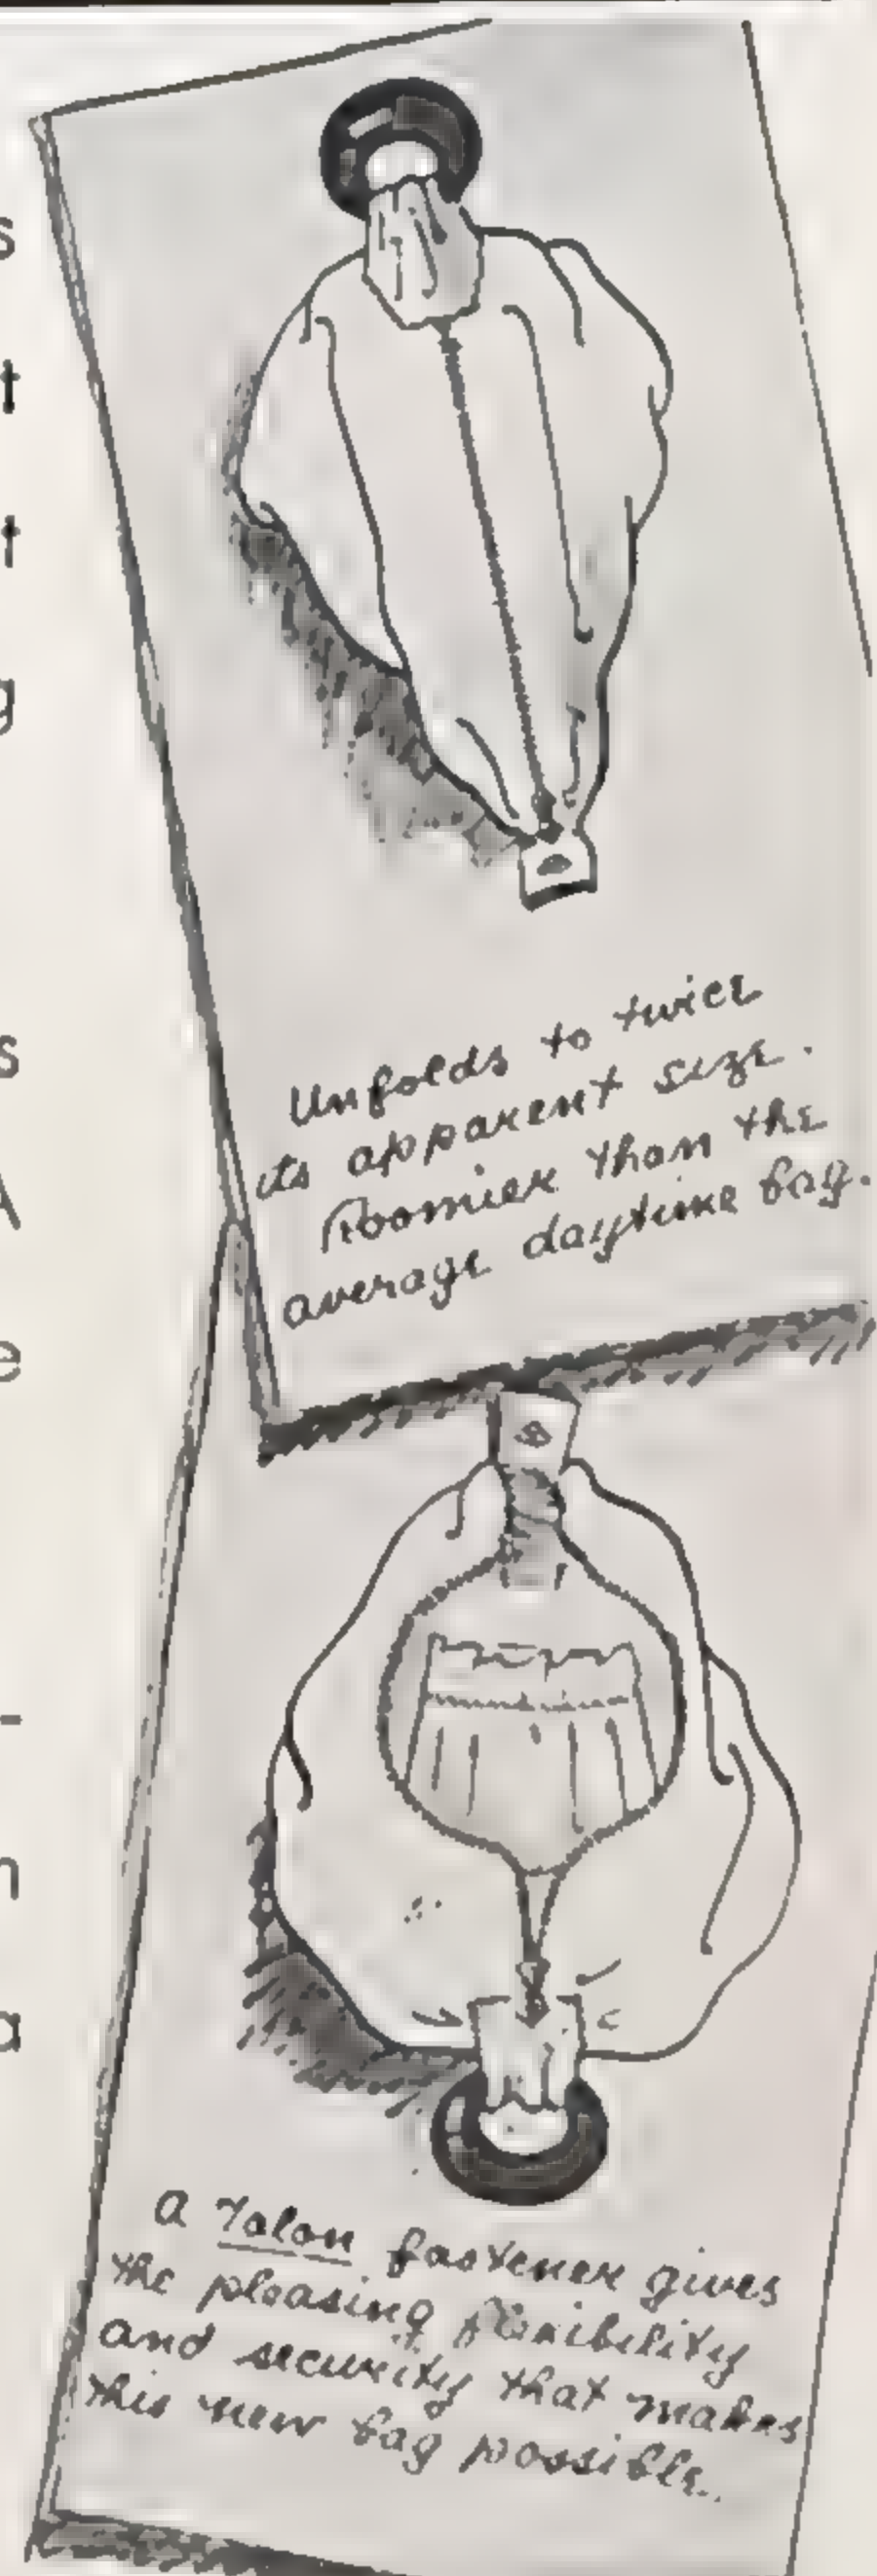 s
t
t
g
s
A
e
-
n
a
Unfolds to twice
its apparent size.
Roomier than the
average daytime bag.
A Talon fastener gives
the pleasing flexibility
and security that makes
this new bag possible.